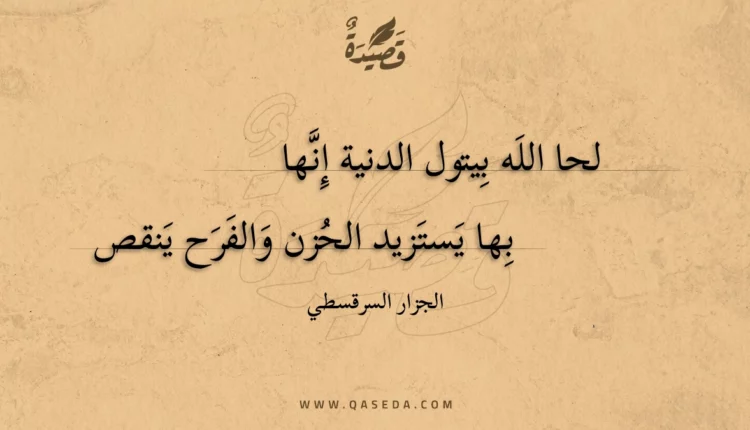 قَصِيْدَةٌ
لحا اللَه بِيتول الدنية إِنَّها
بِها يَستَزيد الحُزن وَالفَرَح يَنقص
الجزار السرقسطي
WWW.QASEDA.COM